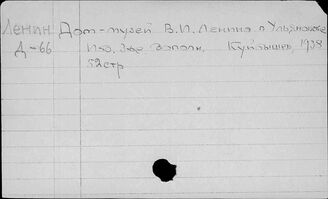 Ленин Дом-музей В.И. Ленина в Ульяновске
Д-66 Изд. 3-е дополн. Куйбышев 1938
52стр